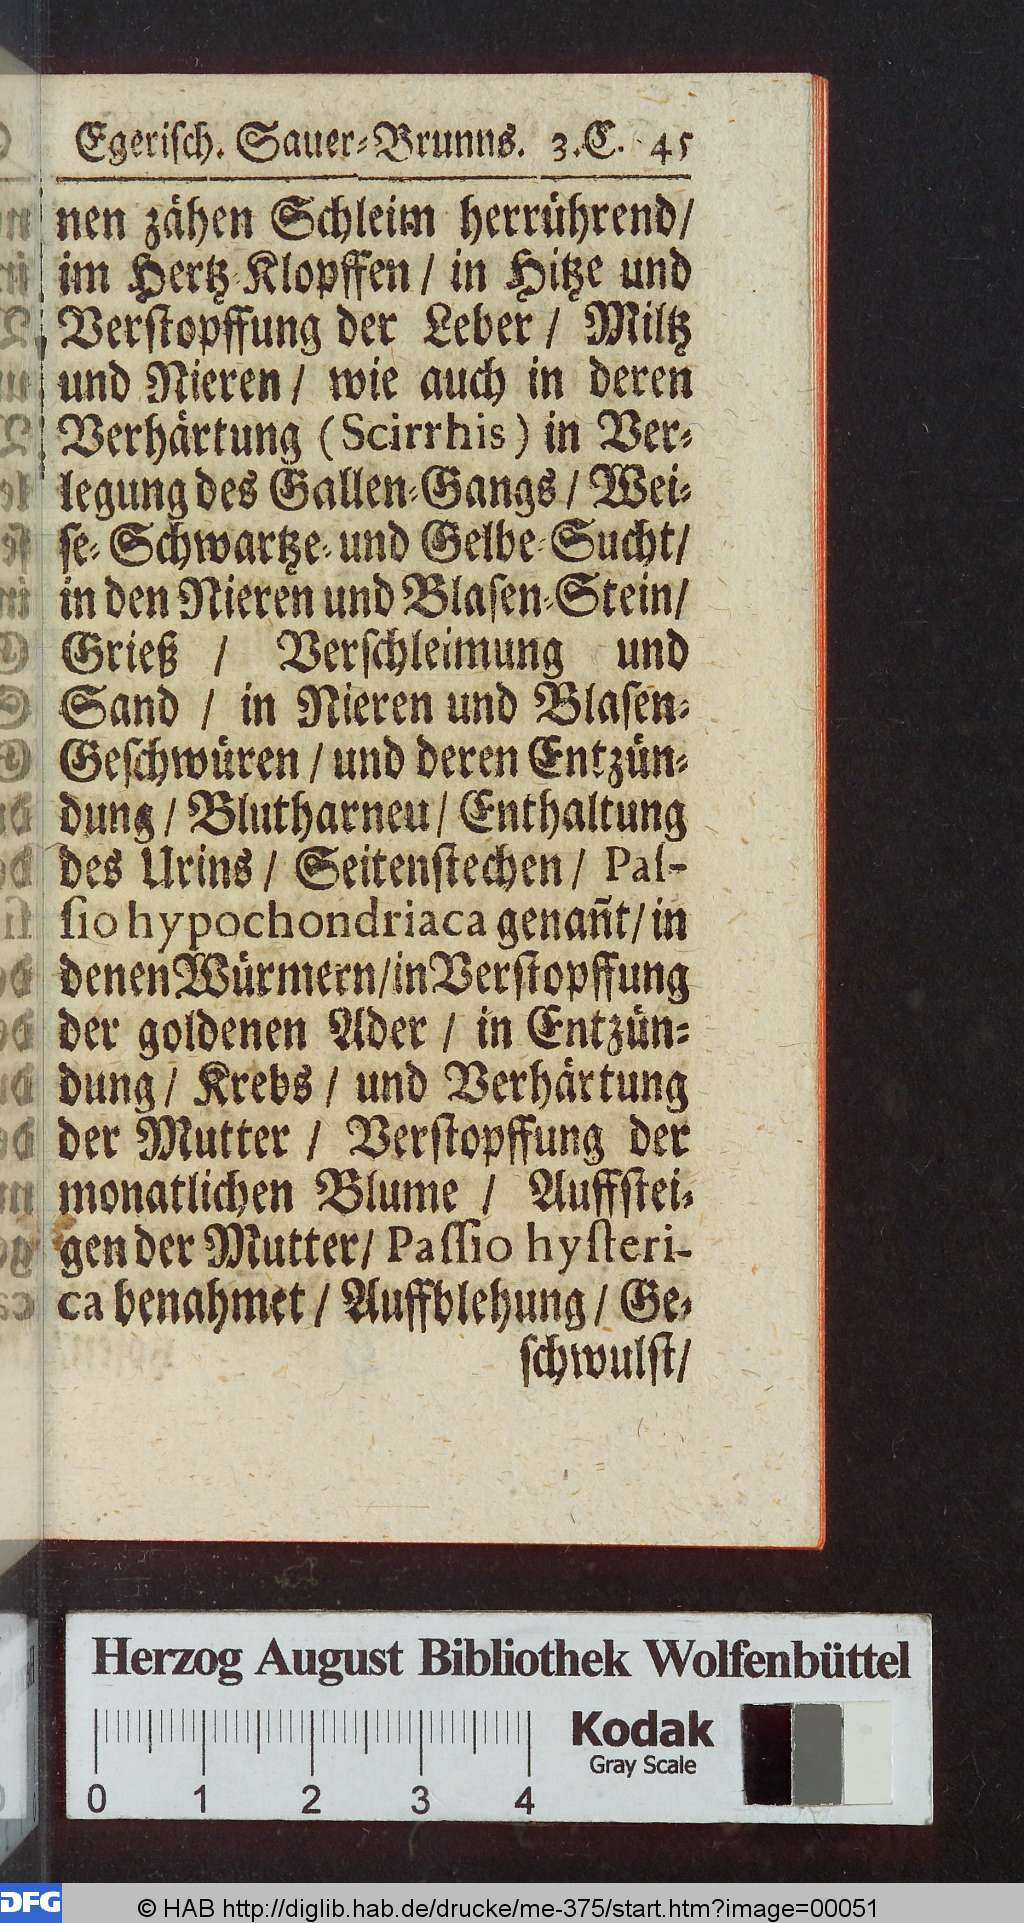 Egeriſch. Sauer-Brunns. 3. C. 45
nen zähen Schleim herrührend/
im Hertz-Klopffen / in Hitze und
Verſtopffung der Leber / Miltz
und Nieren / wie auch in deren
Verhärtung (Scirrhis) in Ver-
legung des Gallen-Gangs / Wei-
ſe- Schwartze- und Gelbe-Sucht/
in den Nieren und Blaſen-Stein/
Grieß / Verſchleimung und
Sand / in Nieren und Blaſen-
Geſchwüren / und deren Entzün-
dung / Blutharneu / Enthaltung
des Urins / Seitenſtechen / Paſ-
ſio hypochondriaca genañt / in
denen Würmern / in Verſtopffung
der goldenen Ader / in Entzün-
dung / Krebs / und Verhärtung
der Mutter / Verſtopffung der
monatlichen Blume / Auffſtei-
gen der Mutter / Paſſio hyſteri-
ca benahmet / Auffblehung / Ge-
ſchwulſt/
Herzog August Bibliothek Wolfenbüttel
Kodak
Gray Scale
0 1 2 3 4
DFG
© HAB http://diglib.hab.de/drucke/me-375/start.htm?image=00051